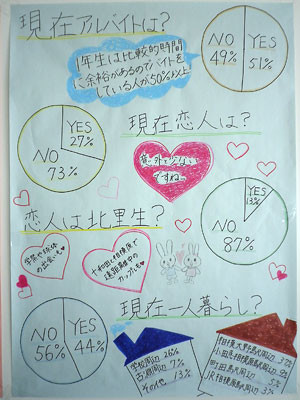 現在アルバイトは?
1年生は比較的時間
に余裕があるのでバイトを
している人が50%以上
NO
49%
YES
51%
現在恋人は?
YES
27%
NO
73%
意外と少ない
ですね。
YES
13%
NO
87%
恋人は北里生?
学祭や部活
の出会いも
十和田と相模原で
遠距離中の
カップルも
現在一人暮らし?
NO
56%
YES
44%
学校周辺 26%
古淵周辺 7%
その他 13%
相模大野駅周辺 37%
小田急相模原駅周辺 9%
町田駅周辺 5%
JR相模原駅周辺 3%